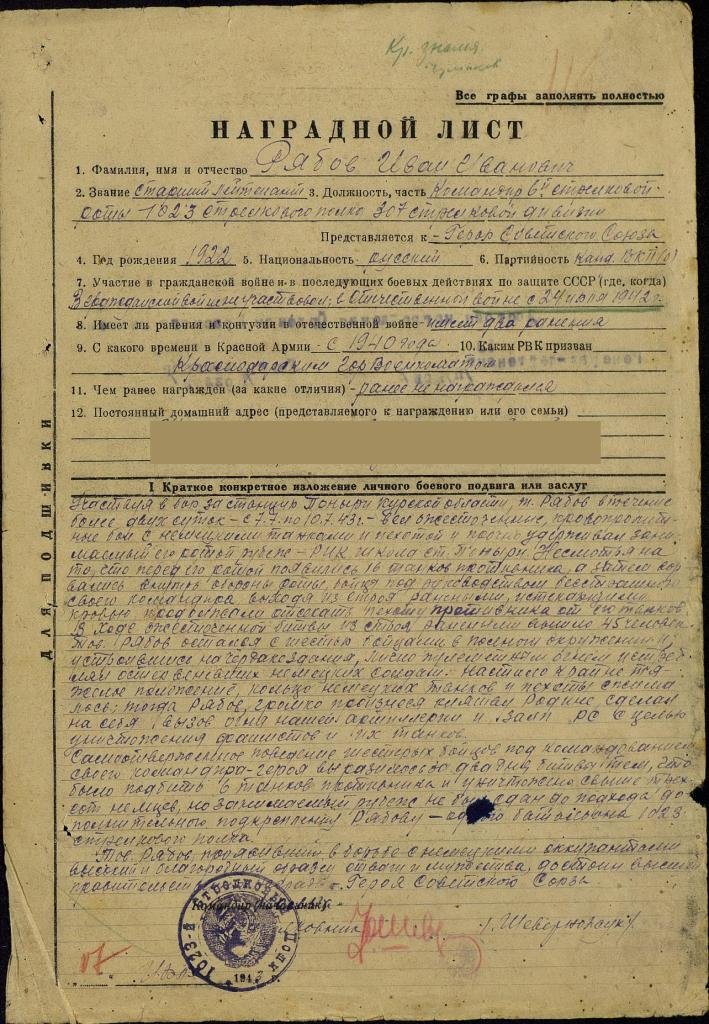 Кр. знамя.
Все графы заполнять полностью
НАГРАДНОЙ ЛИСТ
1. Фамилия, имя и отчество Рябов Иван Иванович
2. Звание Старший лейтенант 3. Должность, часть Командир 6й стрелковой
роты 1023 стрелкового полка 307 стрелковой дивизии
Представляется к Герою Советского Союза
4. Год рождения 1922 5. Национальность русский 6. Партийность канд. ВКП(б)
7. Участие в гражданской войне и в последующих боевых действиях по защите СССР (где, когда)
В гражданской войне не участвовал, в Отечественной войне с 24 июля 1942 г.
8. Имеет ли ранения и контузии в отечественной войне имеет два ранения
9. С какого времени в Красной Армии с 1940 года 10. Каким РВК призван
Краснодарским Горвоенкоматом
11. Чем ранее награжден (за какие отличия) ранее не награждался
12. Постоянный домашний адрес (представляемого к награждению или его семьи)
ДЛЯ ПОДШИВКИ
I Краткое конкретное изложение личного боевого подвига или заслуг
Участвуя в бою за станцию Поныри Курской области, т. Рябов в течение
более двух суток – с 7.7. по 10.7.43 г. – вел ожесточенные, кровопролит-
ные бои с немецкими танками и пехотой и прочно удерживал зани-
маемый его ротой рубеж – РИК школа ст. Поныри. Несмотря на
то, что перед его ротой появились 16 танков противника, а затем вор-
вались вглубь обороны роты, бойцы под руководством бесстрашного
своего командира выходя из строя ранеными, истекающими
кровью продолжали отсекать пехоту противника от её танков.
В ходе ожесточенной битвы из строя ранеными вышло 45 человек
Тов. Рябов остался с шестью бойцами в полном окружении и,
устроившись на чердаке здания, лично пулеметным огнем истреб-
лял остервеневших немецких солдат. Настало крайне тя-
желое положение, кольцо немецких танков и пехоты сжима-
лось; тогда Рябов, громко произнеся клятву Родине сделал
на себя вызов огня нашей артиллерии и залп РС с целью
уничтожения фашистов и их танков.
Самоотверженное поведение шестерых бойцов под командованием
своего командира-героя выразилось за два дня битвы тем, что
было подбито 6 танков противника и уничтожено свыше трех-
сот немцев, но занимаемый рубеж не был сдан до подхода до-
полнительного подкрепления Рябову – одного батальона 1023
стрелкового полка.
Тов. Рябов, проявивший в борьбе с немецкими оккупантами
высокий и благородный образец отваги и мужества, достоин высшей
правительственной награды – Героя Советского Союза.
Командир (начальник)
1023-й Стрелковый Полк
194